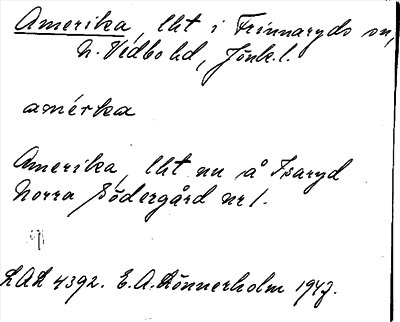 Amerika, lht i Frinnaryds sn,
N. Vedbo hd, Jönk. l.
amérka
Amerika, lht nu å Isaryd
Norra Södergård nr 1.
LAL 4392. E. A. Rönnerholm 1947.